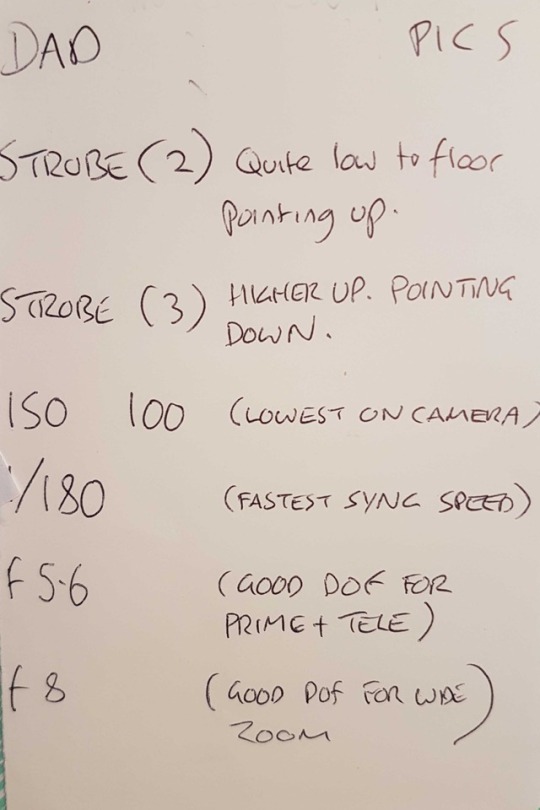 DAD PICS
STROBE (2) Quite low to floor
pointing up.
STROBE (3) HIGHER UP. POINTING
DOWN.
ISO 100 (LOWEST ON CAMERA)
1/180 (FASTEST SYNC SPEED)
f 5.6 (GOOD DOF FOR
PRIME + TELE)
f 8 (GOOD DOF FOR WIDE
ZOOM)